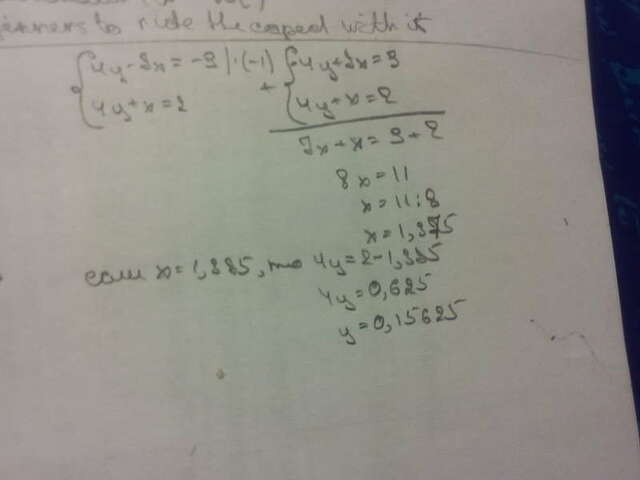 to ride the coped with it
{4y-7x=-9 |·(-1) {-4y+7x=9
{4y+x=2 + {4y+x=2
7x+x=9+2
8x=11
x=11:8
x=1,375
если x=1,375, то 4y=2-1,375
4y=0,625
y=0,15625